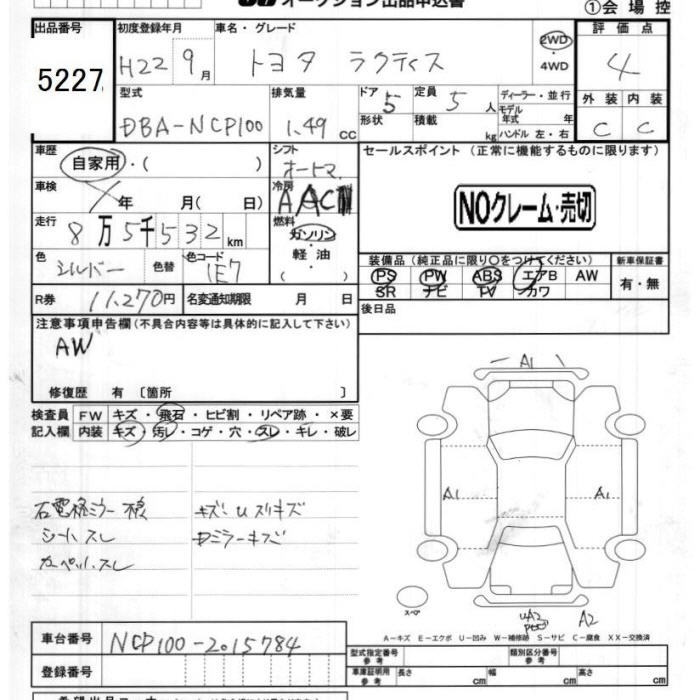 オークション出品申込書
①会場控
出品番号 初度登録年月 車名・グレード 評価点
5227 H22 9月 トヨタ ラクティス 2WD・4WD 4
型式 排気量 ドア 5 定員 5人 ディーラー・並行 外装 内装
DBA-NCP100 1.49cc 形状 積載 kg モデル年式 年 ハンドル 左・右 C C
車歴 自家用・( ) シフト オートマ セールスポイント (正常に機能するものに限ります)
車検 年 月( 日) 冷房 AAC NOクレーム・売切
走行 8万5千532km 燃料 ガソリン・軽油・( )
色 シルバー 色替 色コード 1E7 装備品(純正品に限り○をつけてください) 新車保証書
PS PW ABS エアB AW 有・無
SR ナビ TV カワ
R券 11,270円 名変通知期限 月 日 後日品
注意事項申告欄(不具合内容等は具体的に記入して下さい)
AW
修復歴 有 〔箇所 〕
検査員 FW キズ・飛石・ヒビ割・リペア跡・×要
記入欄 内装 キズ・汚レ・コゲ・穴・スレ・キレ・破レ
A1
A1 A1
シートスレ
カーペットスレ
スペア
A2
A−キズ E−エクボ U−凹み W−補修跡 S−サビ C−腐食 XX−交換済
車台番号 NCP100-2015784
型式指定番号 参考 類別区分番号 参考
登録番号 車庫証明用 参考 長さ cm 幅 cm 高さ cm